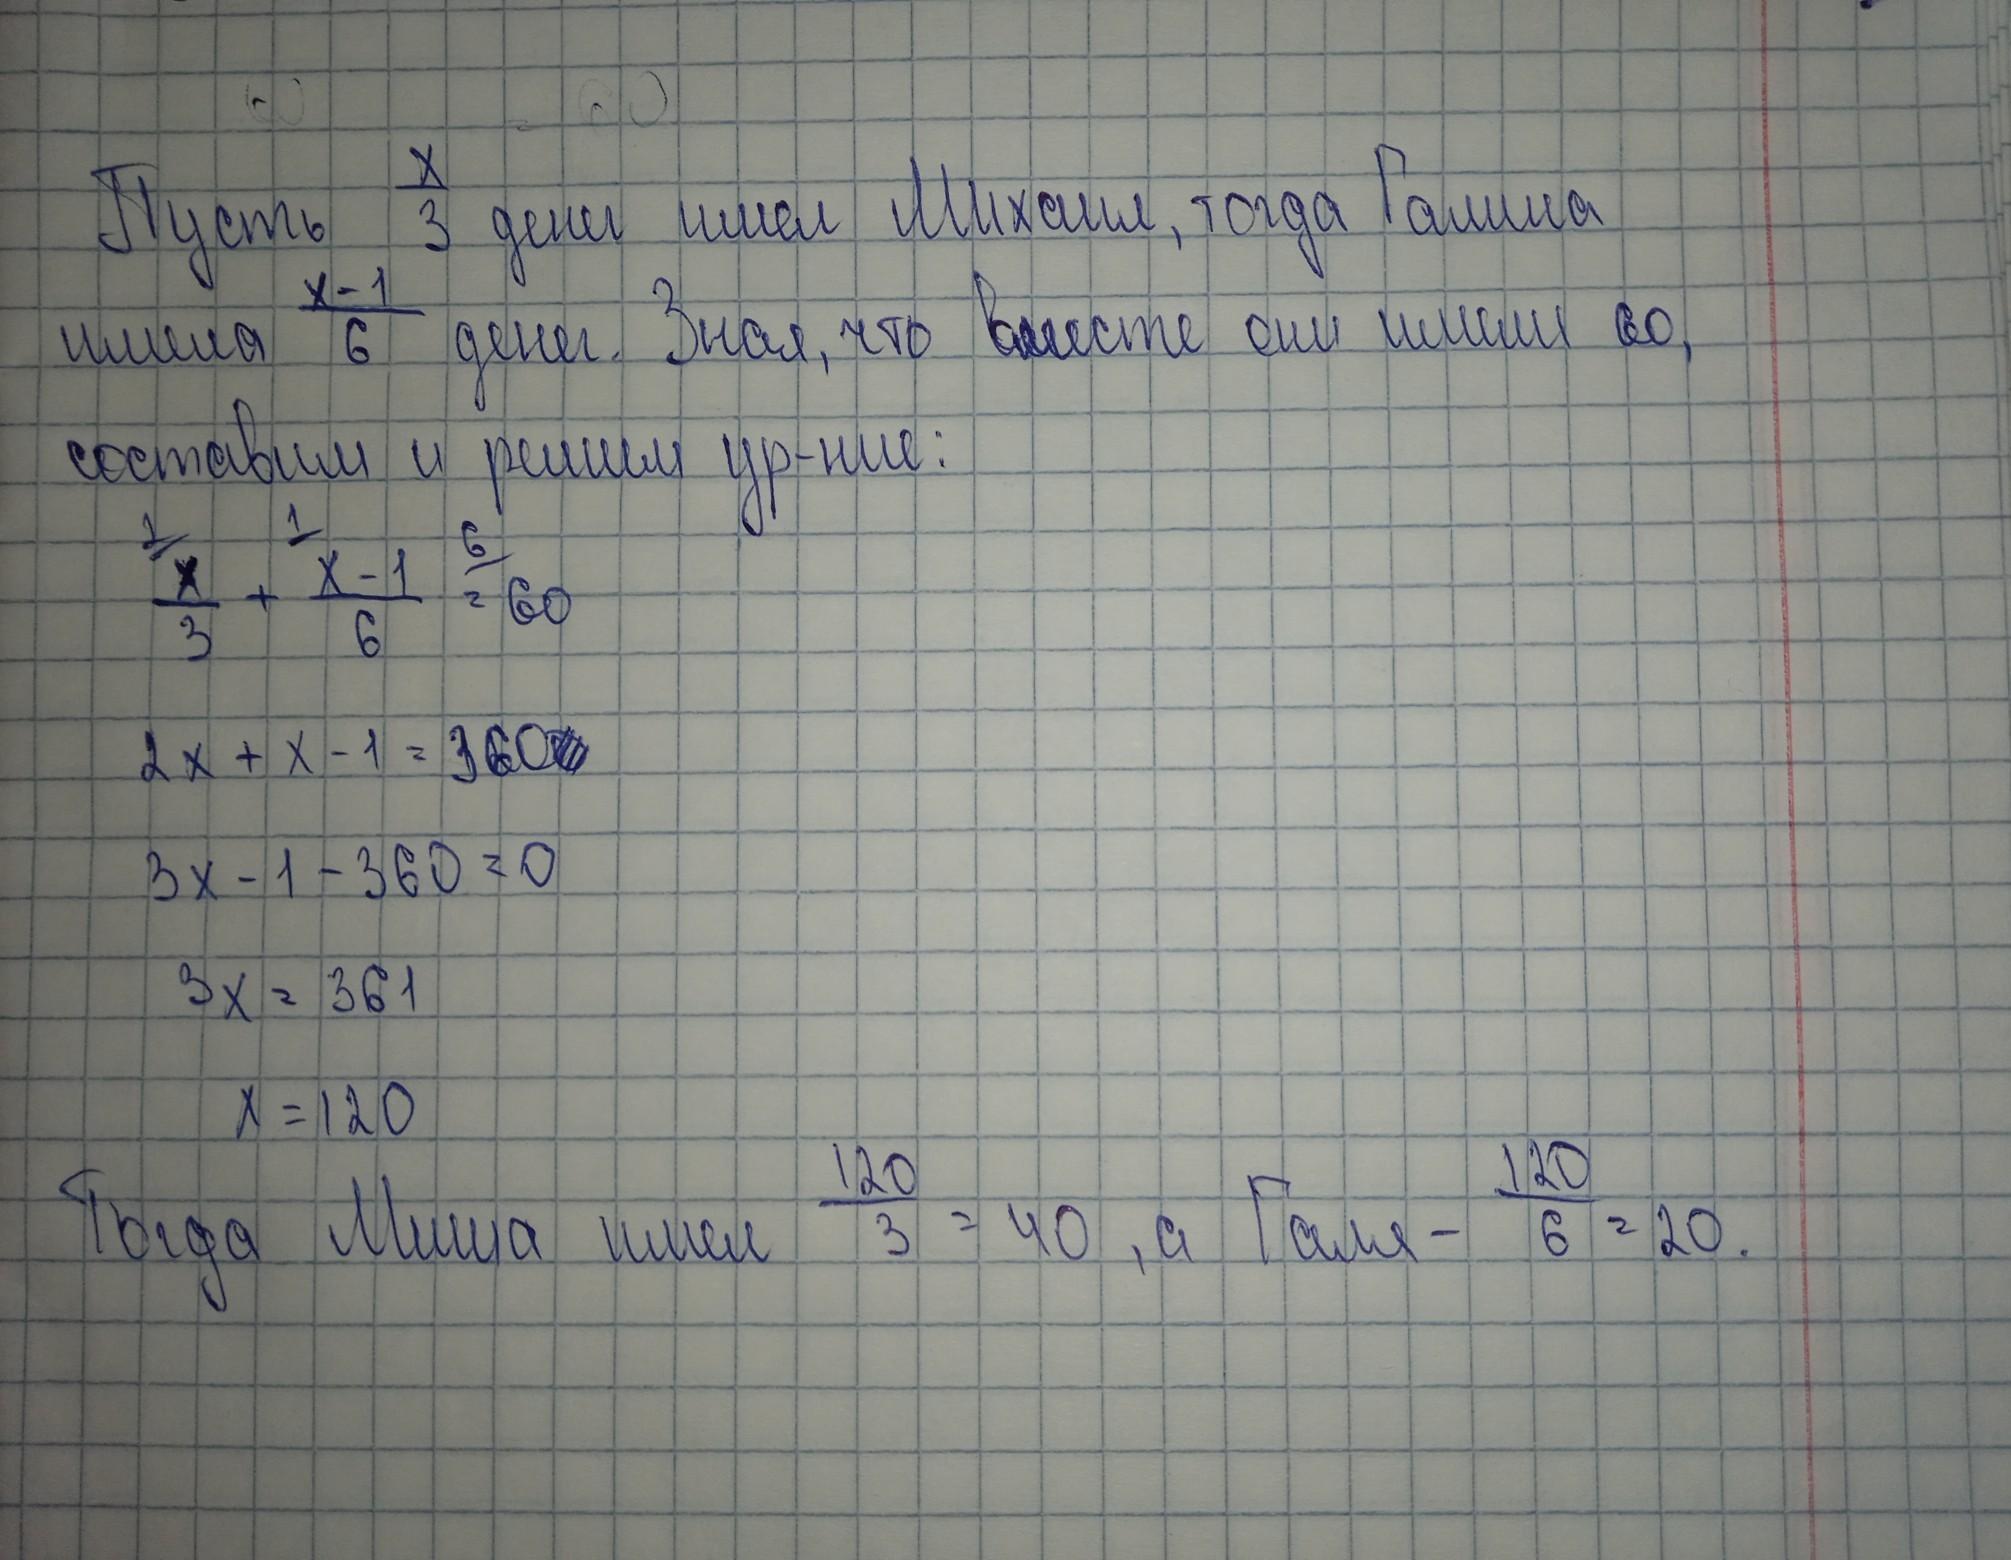 Пусть x/3 денег имел Михаил, тогда Галина
имела x-1/6 денег. Зная, что вместе они имели 60,
составим и решим ур-ние:
2/ 1/ 6/
x/3 + x-1/6 = 60
2x + x - 1 = 360
3x - 1 - 360 = 0
3x = 361
x = 120
Тогда Миша имел 120/3 = 40, а Галя - 120/6 = 20.